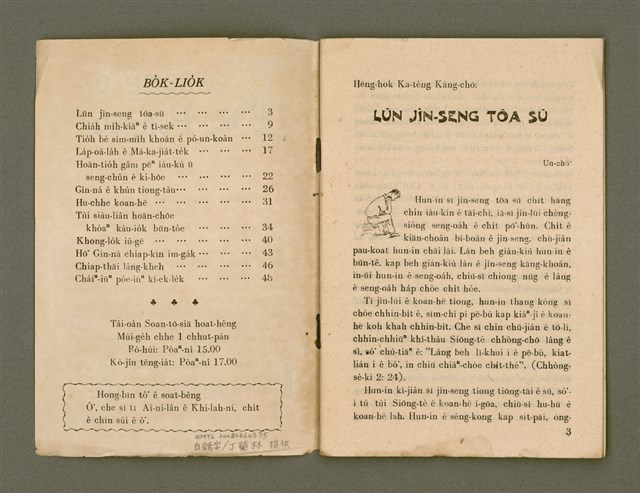 BO̍K-LIO̍K
Lūn jîn-seng tōa-sū ··· ··· ··· ··· 3
Chia̍h mi̍h-kiāⁿ ê tì-sek ··· ··· ··· ··· 9
Tio̍h bé sím-mih khoán ê pò·-un-koàn ··· ··· 12
La̍p-oá-la̍h ê Má-ka-jia̍t-te̍k ··· ··· ··· 17
Hoān-tio̍h gâm pēⁿ iáu-kú ū
seng-chûn ê ki-hōe ··· ··· ··· 22
Gín-ná ê khùn tiong-tàu··· ··· ··· ··· 26
Hu-chhe koan-hē ··· ··· ··· ··· 31
Tùi siàu-liân hoān-chōe
khòaⁿ kàu-io̍k būn-tôe ··· ··· ··· 34
Khong-lo̍k iú-gē ··· ··· ··· ··· 40
Hō· Gín-ná chiap-kīn im-ga̍k··· ··· ··· 43
Chiap-thāi lâng-kheh ··· ··· ··· ··· 46
Cháiⁿ-iūⁿ pôe-iúⁿ kì-ek-le̍k ··· ··· ··· 48
♣ ♣ ♣
Tâi-oân Soan-tō-siā hoat-hêng
Múi-ge̍h chhe 1 chhut-pán
Pò-hùi: Pòaⁿ-nî 15.00
Kò-jîn tēng-ia̍t: Pòaⁿ-nî 17.00
Hong-bīn tô· ê soat-bêng
Ò·, che sī tī Ai-ní-lân ê Khi-lah-ní, chi̍t
ê chin súi ê ô·.
Hēng-hok Ka-têng Káng-chō:
LŪN JÎN-SENG TŌA SŪ
Un-cho·
Hun-in sī jîn-seng tōa sū chi̍t hāng
chin iàu-kín ê tāi-chì, iā-sī jîn-lūi chèng-
siông seng-oa̍h ê chi̍t pō·-hūn. Chi̍t ê
kiān-choân bí-boán ê jîn-seng, chū-jiân
pau-koat hun-in chāi lāi. Lán beh gián-kiù hun-in ê
būn-tê, kap beh gián-kiù lán ê jîn-seng kāng-khoán,
in-ūi hun-in ê seng-oa̍h, chiū-sī chiong nn̄g ê lâng
ê seng-oa̍h ha̍p chòe chi̍t hòe.
Tī jîn-lūi ê koan-hē tiong, hun-in thang kóng sī
chòe chhin-bi̍t ê, sīm-chì pí pē-bú kap kiáⁿ-jî ê koan-
hē koh khah chhin-bi̍t. Che sī chin chū-jiân ê tō-lí,
chhin-chhiūⁿ khí-thâu Siōng-tè chhòng-chō lâng ê
sî, só· chù-tiāⁿ ê: "Lâng beh lī-khui i ê pē-bú, kiat-
liân i ê bó·, in chiū chiâⁿ-chòe chi̍t-thé". (Chhòng-
sè-kì 2: 24).
Hun-in kì-jiân sī jîn-seng tiong tiōng-tāi ê sū, só·-
í tû tùi Siōng-tè ê koan-hē í-gōa, chiū-sī hu-hū ê
koan-hē lah. Hun-in ê sêng-kong kap sit-pāi, óng-
3